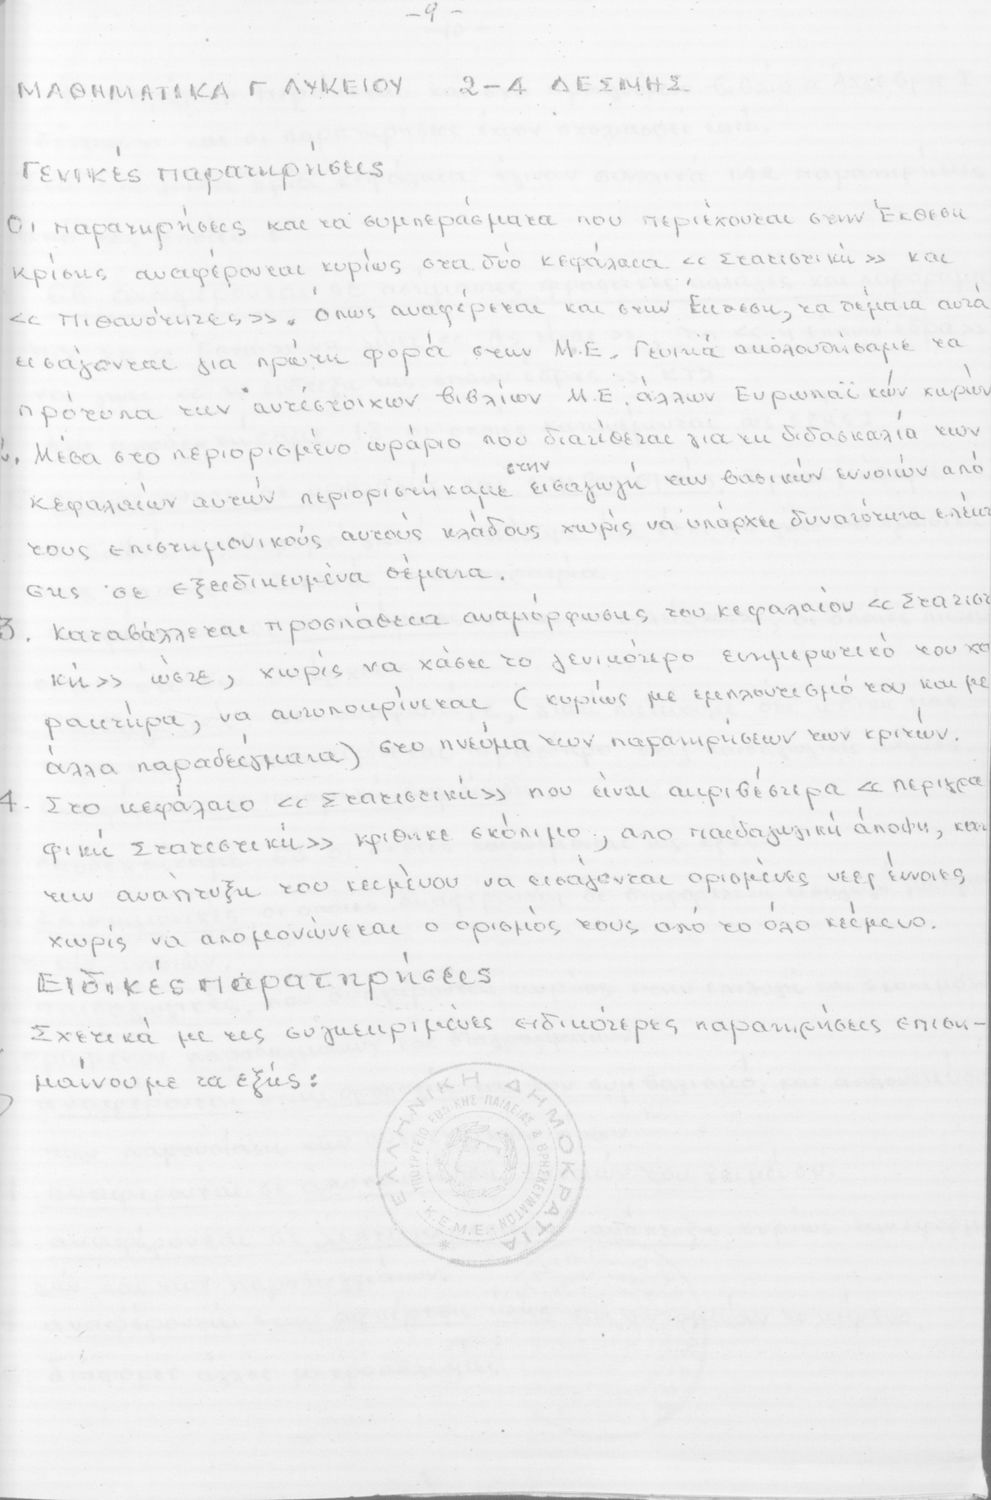 -9-
ΜΑΘΗΜΑΤΙΚΑ Γ ΛΥΚΕΙΟΥ 2-4 ΔΕΣΜΗΣ
Γενικές παρατηρήσεις
Οι παρατηρήσεις και τα συμπεράσματα που περιέχονται στην Έκθεση
κρίσης αναφέρονται κυρίως στα δύο κεφάλαια «Στατιστική» και
«Πιθανότητες». Όπως αναφέρεται και στην Έκθεση, τα θέματα αυτά
εισάγονται για πρώτη φορά στην Μ.Ε. Γενικά ακολουθήσαμε τα
πρότυπα των αντίστοιχων βιβλίων Μ.Ε. άλλων Ευρωπαϊκών χωρών
2. Μέσα στο περιορισμένο ωράριο που διατίθεται για τη διδασκαλία των
κεφαλαίων αυτών περιοριστήκαμε στην εισαγωγή των βασικών εννοιών από
τους επιστημονικούς αυτούς κλάδους χωρίς να υπάρχει δυνατότητα επέκτα
σης σε εξειδικευμένα θέματα.
3. Καταβάλλεται προσπάθεια αναμόρφωσης του κεφαλαίου «Στατιστ
κή» ώστε, χωρίς να χάσει το γενικότερο ενημερωτικό του χα
ρακτήρα, να ανταποκρίνεται (κυρίως με εμπλουτισμό του και με
άλλα παραδείγματα) στο πνεύμα των παρατηρήσεων των κριτών.
4. Στο κεφάλαιο «Στατιστική» που είναι ακριβέστερα «Περιγρα
φική Στατιστική» κρίθηκε σκόπιμο, από παιδαγωγική άποψη, κατ
την ανάπτυξη του κειμένου να εισάγονται ορισμένες νέες έννοιες
χωρίς να απομονώνεται ο ορισμός τους από το όλο κείμενο.
Ειδικές παρατηρήσεις
Σχετικά με τις συγκεκριμένες ειδικότερες παρατηρήσεις επιση-
μαίνουμε τα εξής:
ΕΛΛΗΝΙΚΗ ΔΗΜΟΚΡΑΤΙΑ
ΥΠΟΥΡΓΕΙΟ ΕΘΝΙΚΗΣ ΠΑΙΔΕΙΑΣ & ΘΡΗΣΚΕΥΜΑΤΩΝ
Κ.Ε.Μ.Ε.